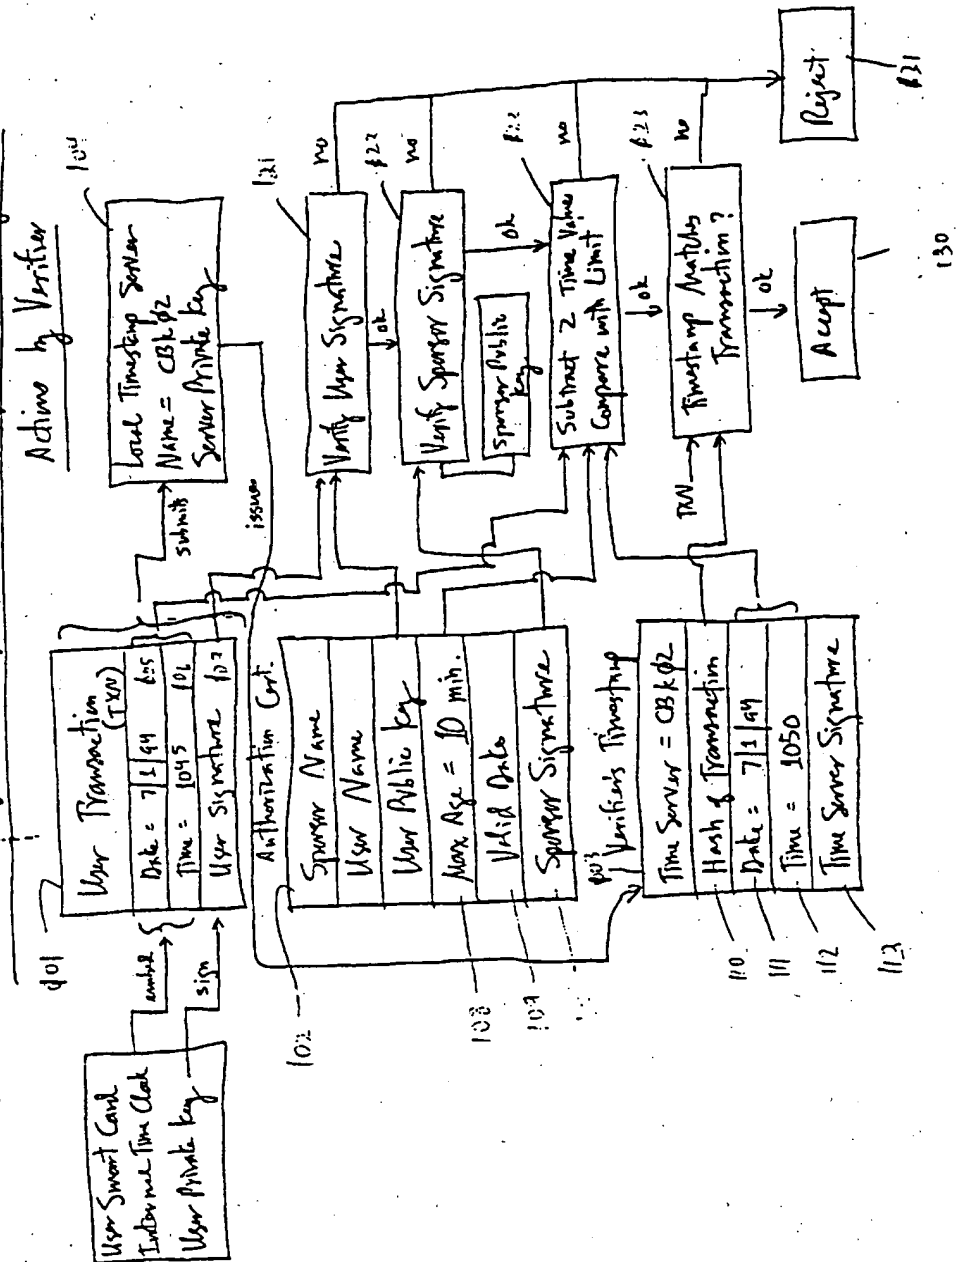 Actions by Verifier
User Smart Card
Internal Time Clock
User Private Key
embed
sign
101
User Transaction
(TXN)
Date = 7/1/94 105
Time = 1045 106
User Signature 107
submits
Local Timestamp Server
Name = CBkφ2
Server Private Key
issues
Authorization Cert.
102
Sponsor Name
User Name
User Public Key
Max Age = 10 min.
Valid Date
Sponsor Signature
108
109
103
Verifier's Timestamp
Time Server = CBkφ2
Hash of Transaction
Date = 7/1/94
Time = 1050
Time Server Signature
110
111
112
113
121
Verify User Signature
no
ok
122
Verify Sponsor Signature
no
ok
Sponsor Public
Key
Subtract 2 Time Values
Compare with Limit
no
ok
123
TXN
Timestamp Matches
Transaction?
no
ok
Accept
130
Reject
131